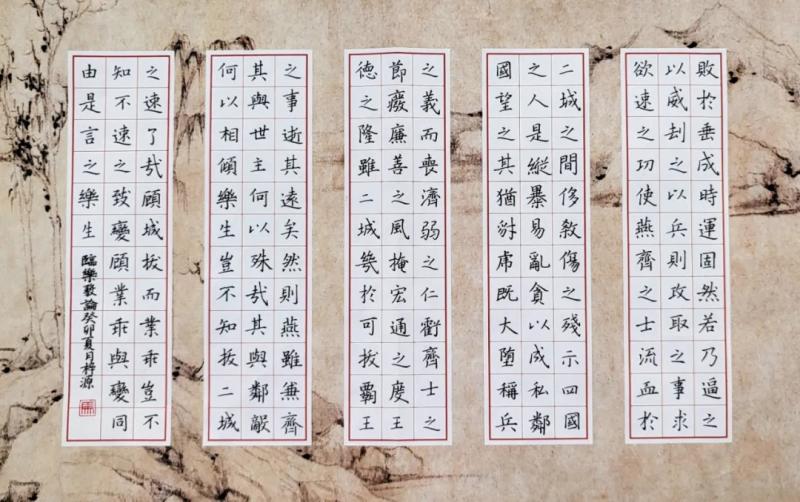 敗於垂成時運固然若乃逼之
以威刦之以兵則攻取之事求
欲速之功使燕齊之士流血於
二城之間侈敎傷之殘示四國
之人是縱暴易亂貪以成私鄰
國望之其猶豺虎既大墮稱兵
之義而喪濟弱之仁虧齊士之
節癈廉善之風掩宏通之度王
德之隆雖二城幾於可拔霸王
之事逝其遠矣然則燕雖兼齊
其與世主何以殊哉其與鄰敵
何以相傾樂生豈不知拔二城
之速了哉顧城拔而業乖豈不
知不速之致變顧業乖與變同
由是言之樂生
臨樂毅論癸卯夏月梓源